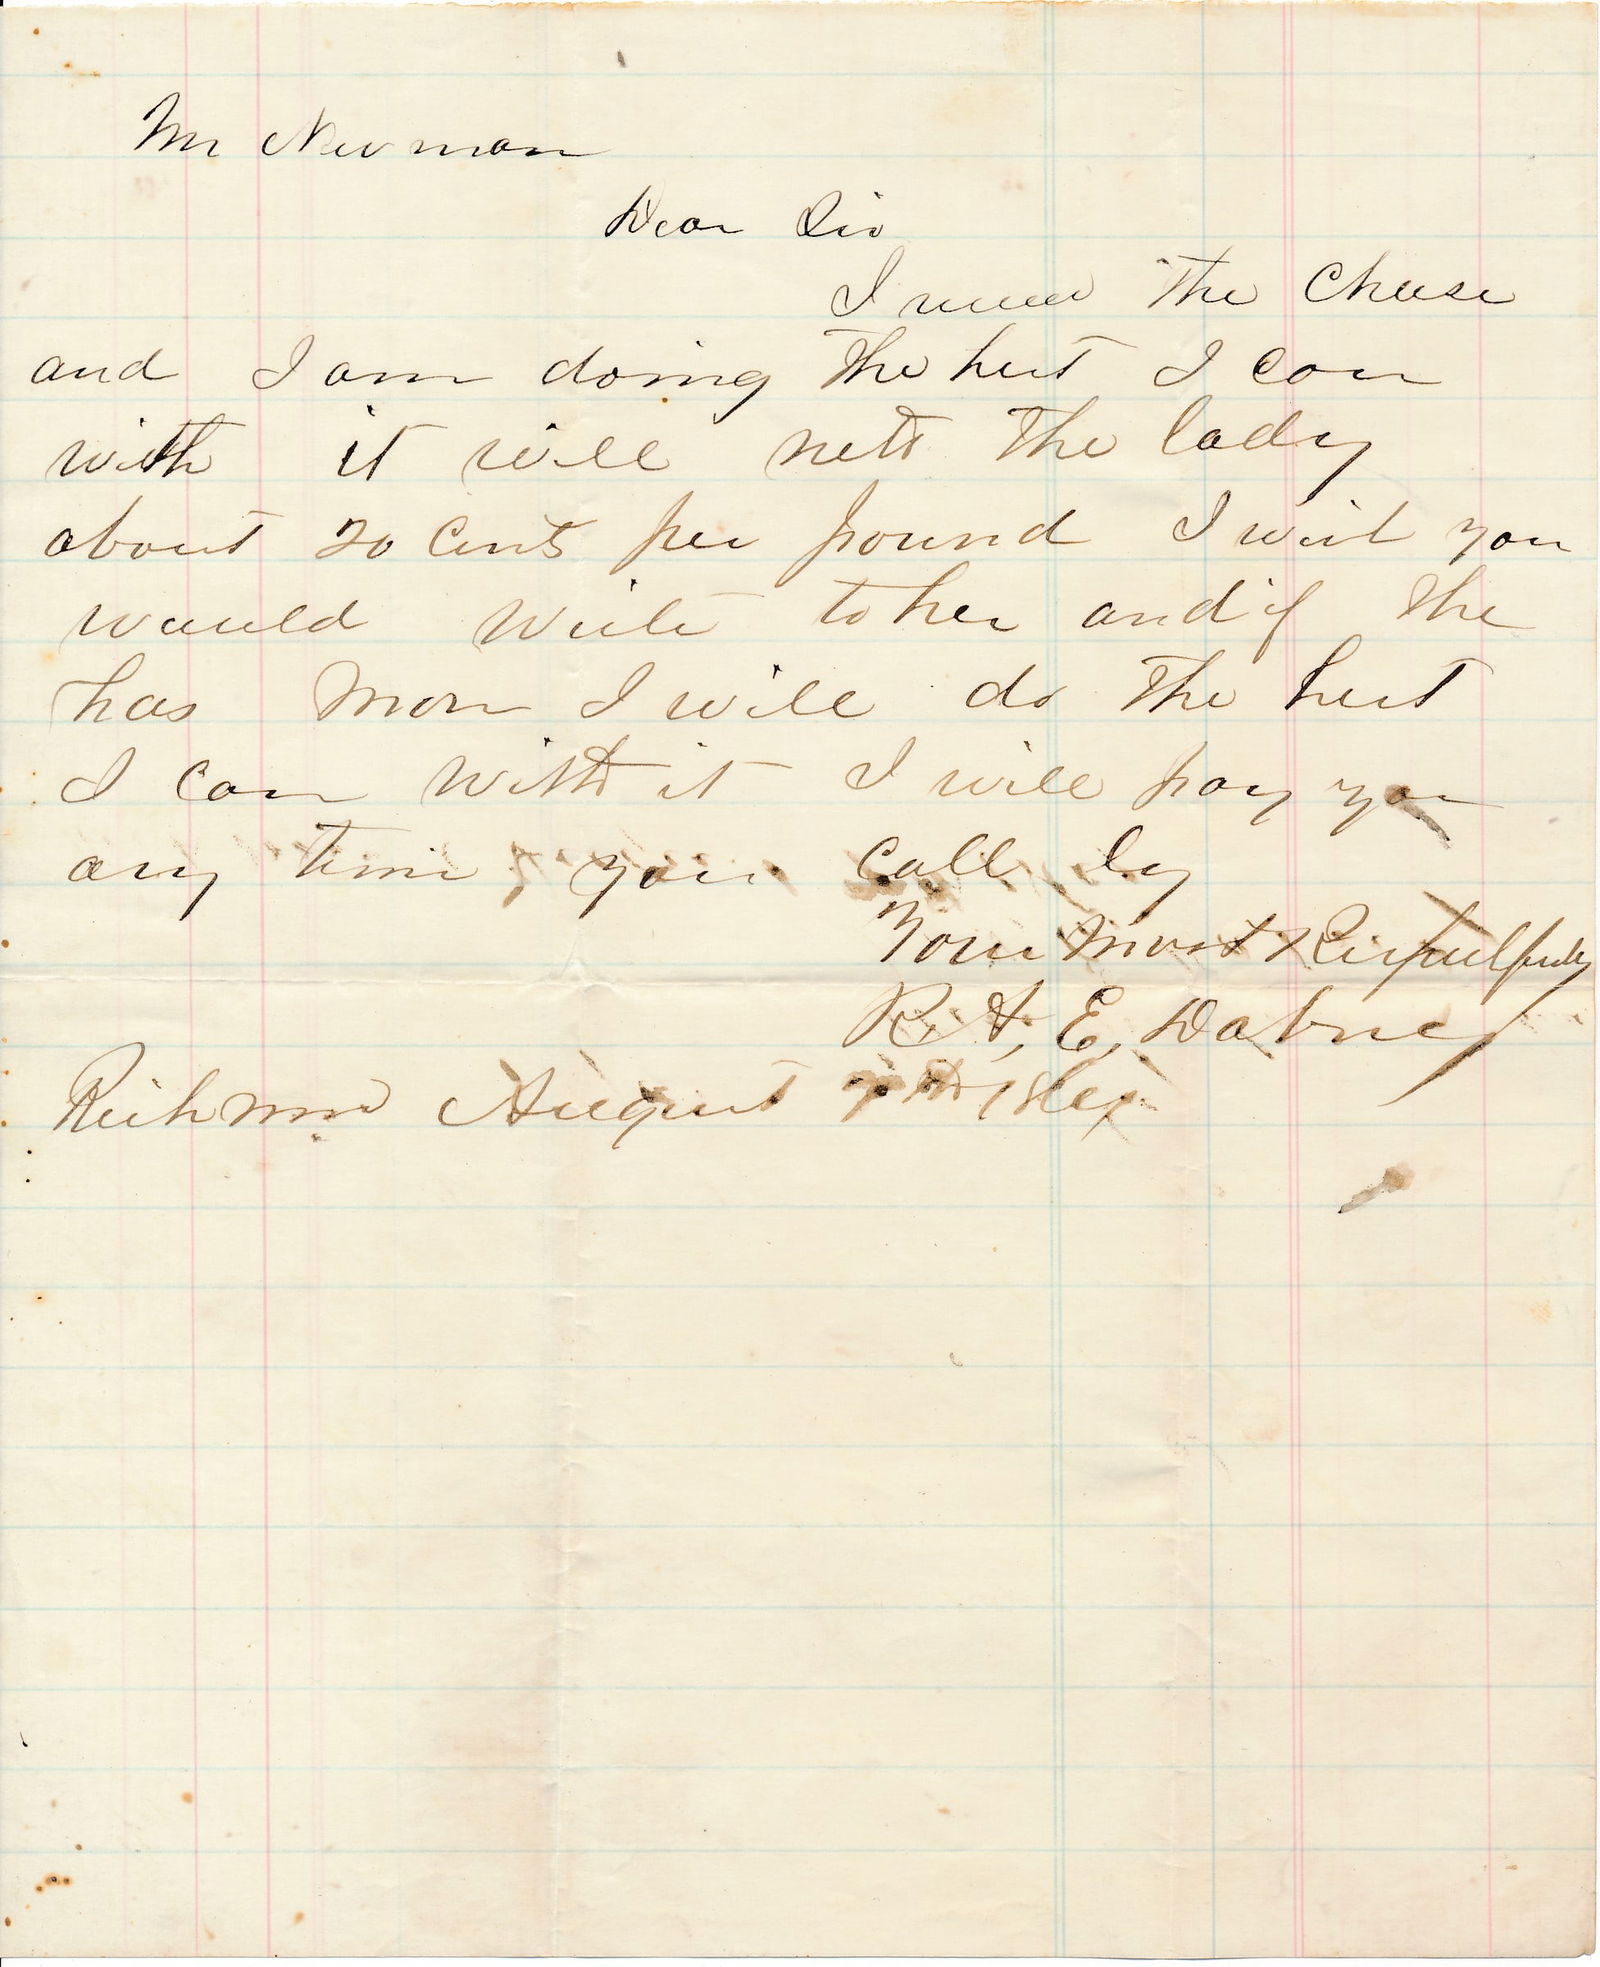 Mr Newman
Dear Sir
I  the Cheese
and I am doing the best I can
with it will nett the lady
about 20 Cents per pound I wish you
would write to her and if she
has more I will do the best
I can with it I will pay you
any time you call by
Your Most Respectfully
R. H. E. Dabney
Richmond August 7th